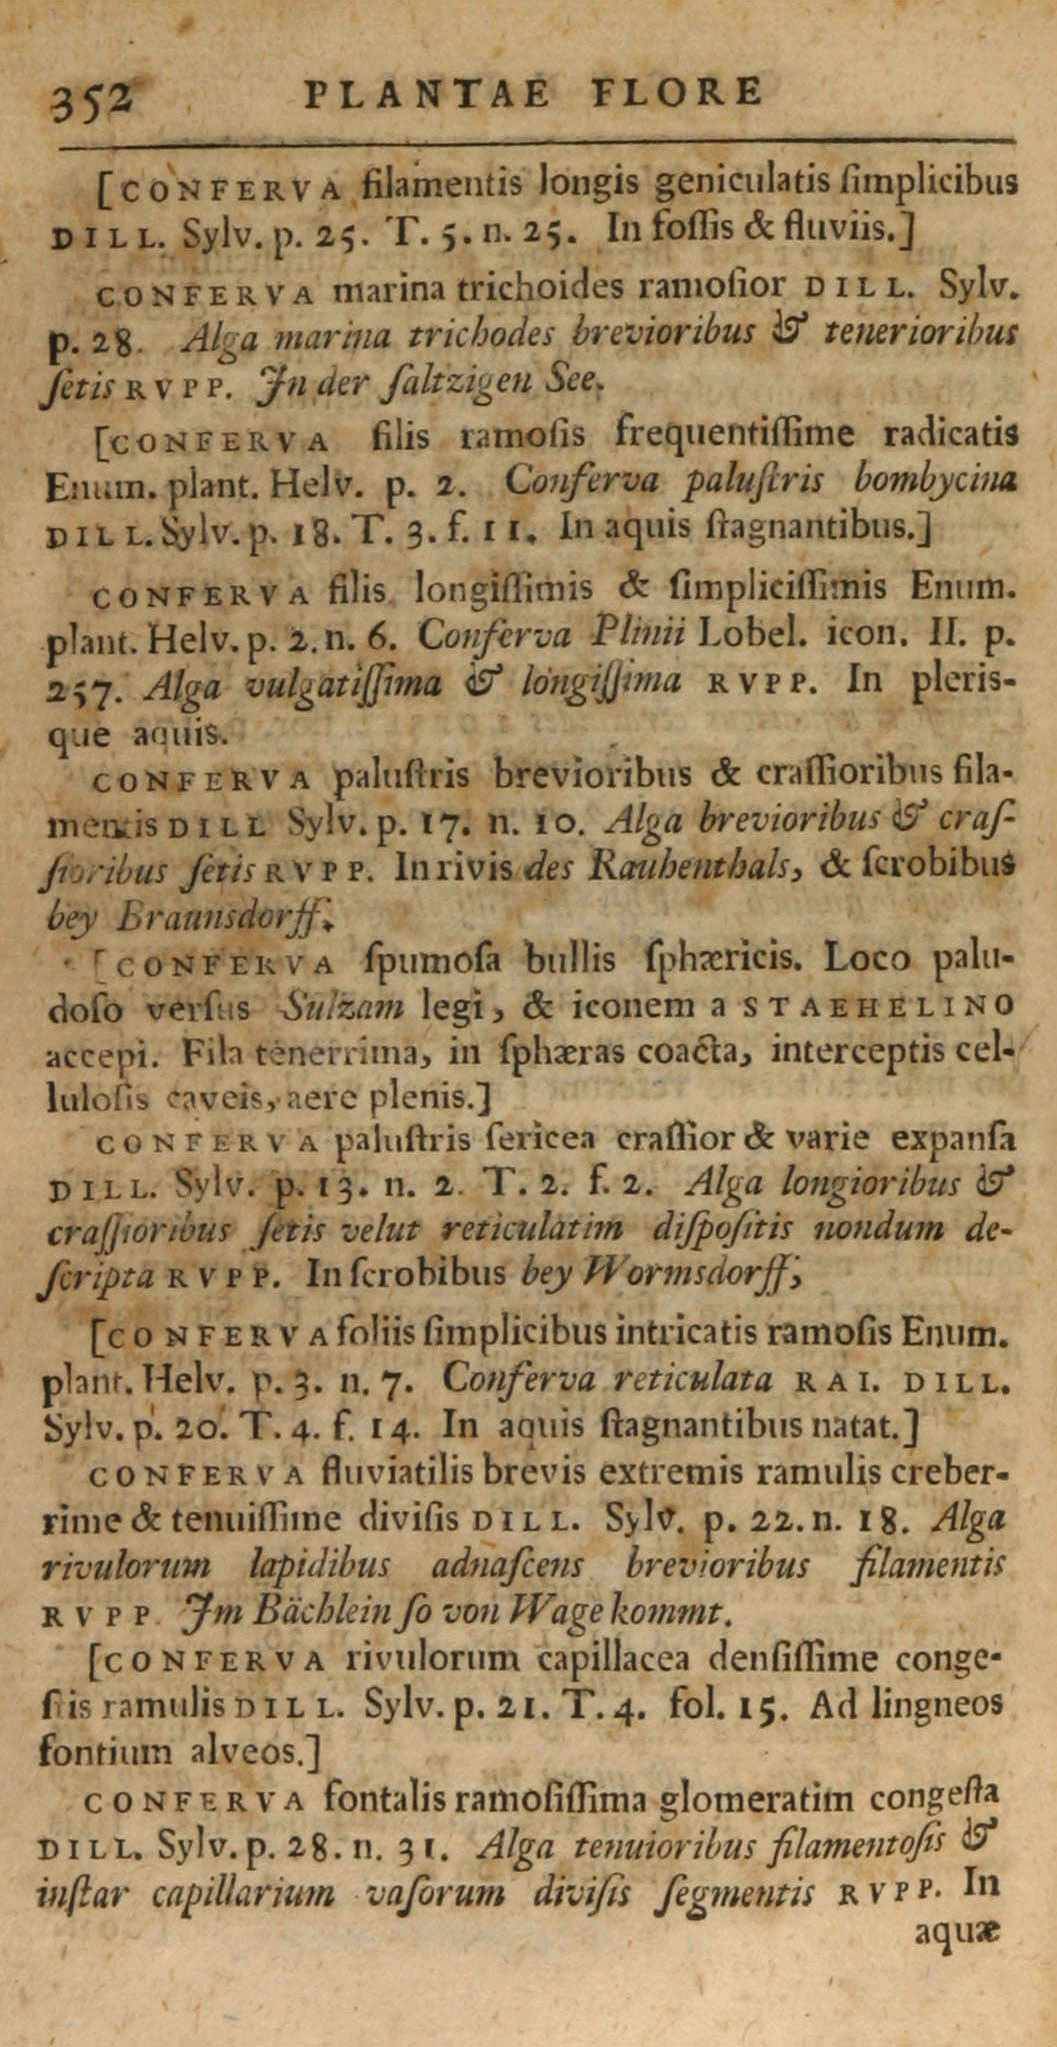 352 PLANTAE FLORE
[CONFERVA filamentis longis geniculatis ſimplicibus
DILL. Sylv. p. 25. T. 5. n. 25. In foſſis & fluviis.]
CONFERVA marina trichoides ramoſior DILL. Sylv.
p. 28. Alga marina trichodes brevioribus & tenerioribus
ſetis RVPP. Jn der ſaltzigen See.
[CONFERVA filis ramoſis frequentiſſime radicatis
Enum. plant. Helv. p. 2. Conferva paluſtris bombycina
DILL. Sylv. p. 18. T. 3. f. 11. In aquis ſtagnantibus.]
CONFERVA filis longiſſimis & ſimpliciſſimis Enum.
plant. Helv. p. 2. n. 6. Conferva Plinii Lobel. icon. II. p.
257. Alga vulgatiſſima & longiſſima RVPP. In pleris-
que aquis.
CONFERVA paluſtris brevioribus & craſſioribus fila-
mentis DILL Sylv. p. 17. n. 10. Alga brevioribus & craſ-
ſioribus ſetis RVPP. In rivis des Rauhenthals, & ſcrobibus
bey Braunsdorff.
[CONFERVA ſpumoſa bullis ſphæricis. Loco palu-
doſo verſus Sulzam legi, & iconem a STAEHELINO
accepi. Fila tenerrima, in ſphæras coacta, interceptis cel-
luloſis caveis, aere plenis.]
CONFERVA paluſtris ſericea craſſior & varie expanſa
DILL. Sylv. p. 13. n. 2. T. 2. f. 2. Alga longioribus &
craſſioribus ſetis velut reticulatim diſpoſitis nondum de-
ſcripta RVPP. In ſcrobibus bey Wormsdorff,
[CONFERVA foliis ſimplicibus intricatis ramoſis Enum.
plant. Helv. p. 3. n. 7. Conferva reticulata RAI. DILL.
Sylv. p. 20. T. 4. f. 14. In aquis ſtagnantibus natat.]
CONFERVA fluviatilis brevis extremis ramulis creber-
rime & tenuiſſime diviſis DILL. Sylv. p. 22. n. 18. Alga
rivulorum lapidibus adnaſcens brevioribus filamentis
RVPP Jm Bächlein ſo von Wage kommt.
[CONFERVA rivulorum capillacea denſiſſime conge-
ſtis ramulis DILL. Sylv. p. 21. T. 4. fol. 15. Ad lingneos
fontium alveos.]
CONFERVA fontalis ramoſiſſima glomeratim congeſta
DILL. Sylv. p. 28. n. 31. Alga tenuioribus filamentoſis &
inſtar capillarium vaſorum diviſis ſegmentis RVPP. In
aquæ